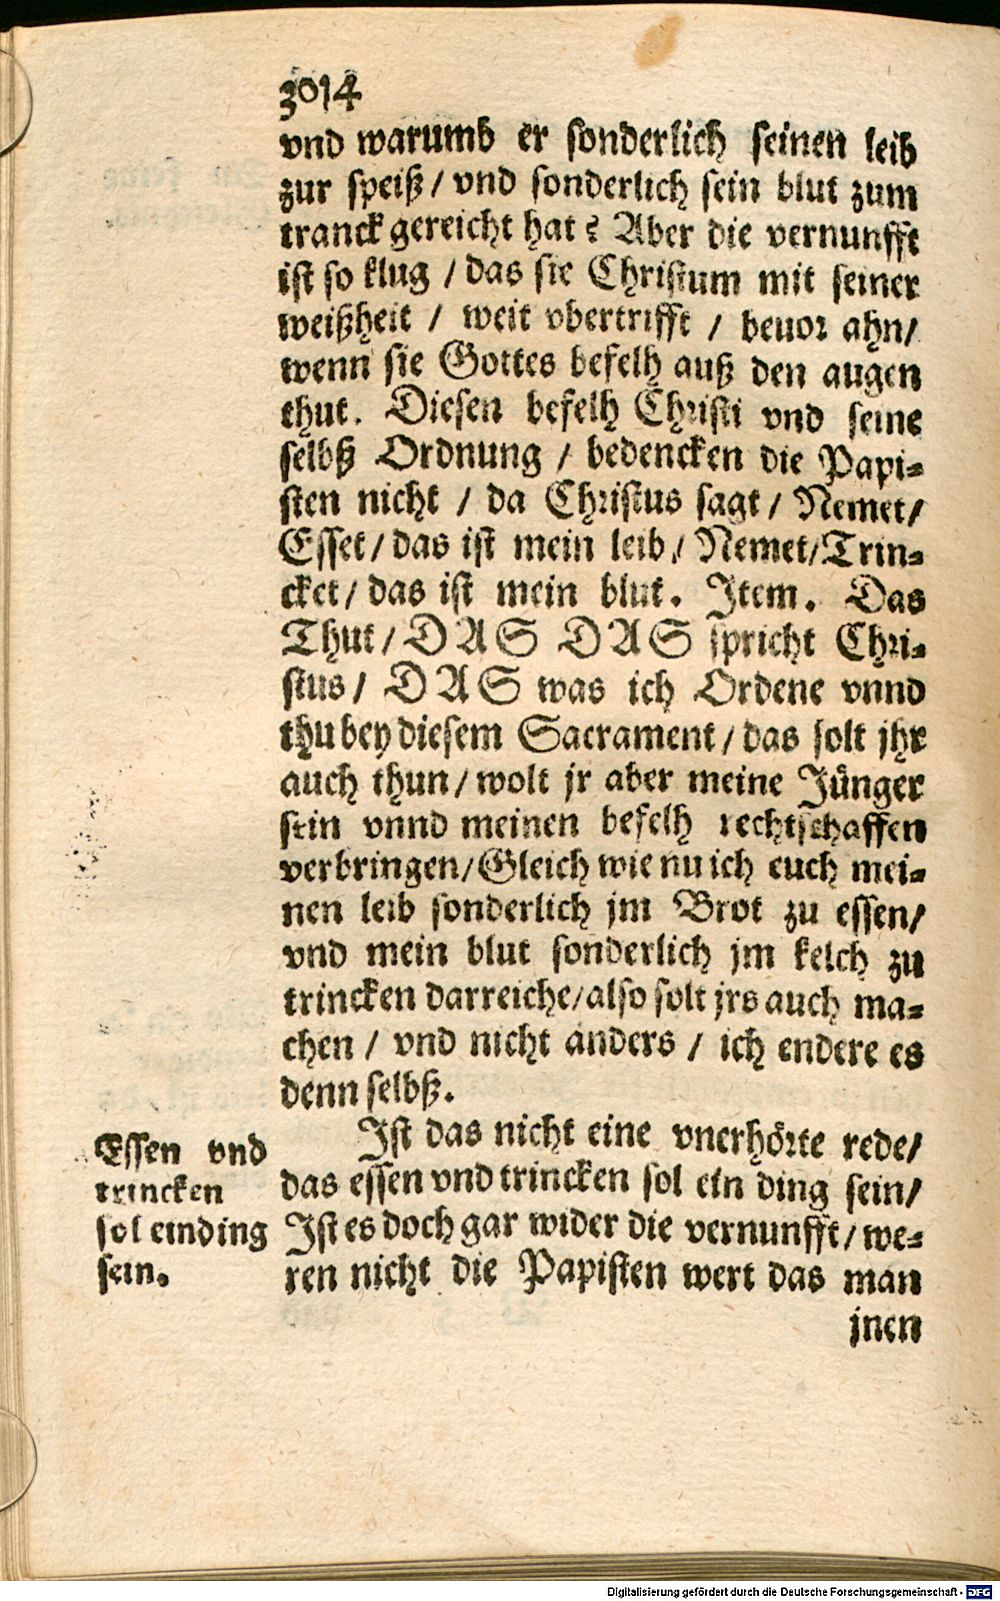 3014
vnd warumb er sonderlich seinen leib
zur speiß / vnd sonderlich sein blut zum
tranck gereicht hat? Aber die vernunfft
ist so klug / das sie Christum mit seiner
weißheit / weit vbertrifft / beuor ahn/
wenn sie Gottes befelh auß den augen
thut. Diesen befelh Christi vnd seine
selbß Ordnung / bedencken die Papi-
sten nicht / da Christus sagt / Nemet/
Esset / das ist mein leib / Nemet/Trin-
cket / das ist mein blut. Item. Das
Thut / DAS DAS spricht Chri-
stus / DAS was ich Ordene vnnd
thu bey diesem Sacrament / das solt jhr
auch thun / wolt jr aber meine Jünger
sein vnnd meinen befelh rechtschaffen
verbringen/Gleich wie nu ich euch mei-
nen leib sonderlich jm Brot zu essen/
vnd mein blut sonderlich jm kelch zu
trincken darreiche/also solt jrs auch ma-
chen / vnd nicht anders / ich endere es
denn selbß.
Ist das nicht eine vnerhörte rede/
das essen vnd trincken sol ein ding sein/
Ist es doch gar wider die vernunfft / we-
ren nicht die Papisten wert das man
jnen
Essen vnd
trincken
sol ein ding
sein.
Digitalisierung gefördert durch die Deutsche Forschungsgemeinschaft - DFG